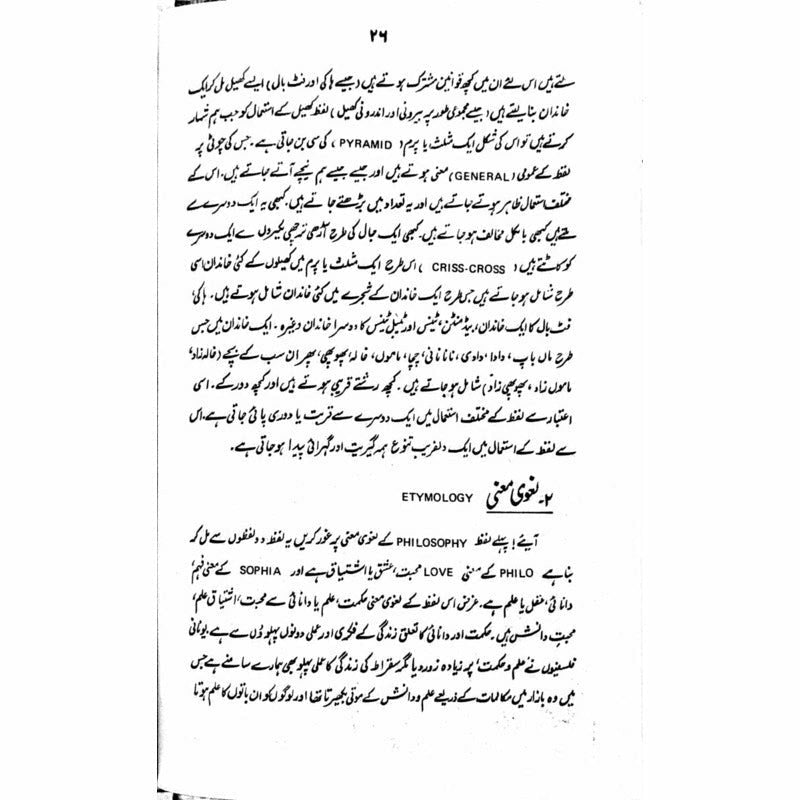 ۲۶
سٹتے ہیں اس لئے ان میں کچھ قوانین مشترک ہوتے ہیں (جیسے ہاکی اور فٹ بال) ایسے کھیل مل کر ایک
خاندان بنا لیتے ہیں (جیسے مجموعی طور پر بیرونی اور اندرونی کھیل) لفظ کھیل کے استعمال کو جب ہم شمار
کرتے ہیں تو اس کی شکل ایک مثلث یا پرم (PYRAMID) کی سی بن جاتی ہے۔ جس کی چوٹی پر
لفظ کے عمومی (GENERAL) معنی ہوتے ہیں اور جیسے جیسے ہم نیچے آتے جاتے ہیں۔ اس کے
مختلف استعمال ظاہر ہوتے جاتے ہیں اور یہ تعداد میں بڑھتے جاتے ہیں۔ کبھی یہ ایک دوسرے سے
ملتے ہیں کبھی بالکل مخالف ہو جاتے ہیں۔ کبھی ایک جال کی طرح آڑھی ترچھی لکیروں سے ایک دوسرے
کو کاٹتے ہیں (CRISS-CROSS) اس طرح ایک مثلث یا پرم میں کھیلوں کے کئی خاندان اسی
طرح شامل ہو جاتے ہیں جس طرح ایک خاندان کے شجرے میں کئی خاندان شامل ہوتے ہیں۔ ہاکی،
فٹ بال کا ایک خاندان، بیڈمنٹن، ٹینس اور ٹیبل ٹینس کا دوسرا خاندان وغیرہ۔ ایک خاندان میں جس
طرح ماں باپ، دادا، دادی، نانا نانی، چچا، ماموں، خالہ، پھوپھی، پھر ان سب کے بچے (خالہ زاد،
ماموں زاد، پھوپھی زاد) شامل ہو جاتے ہیں۔ کچھ رشتے قریبی ہوتے ہیں اور کچھ دور کے۔ اسی
اعتبار سے لفظ کے مختلف استعمال میں ایک دوسرے سے قربت یا دوری پائی جاتی ہے۔ اس
سے لفظ کے استعمال میں ایک دلفریب تنوع ہمہ گیریت اور گہرائی پیدا ہو جاتی ہے۔
۲۔ لغوی معنی ETYMOLOGY
آیئے! پہلے لفظ PHILOSOPHY کے لغوی معنی پر غور کریں یہ لفظ دو لفظوں سے مل کر
بنا ہے PHILO کے معنی LOVE محبت، عشق یا اشتیاق ہے اور SOPHIA کے معنی فہم،
دانائی، عقل یا علم ہے۔ غرض اس لفظ کے لغوی معنی حکمت، علم یا دانائی سے محبت، اشتیاق علم،
محبتِ دانش ہیں۔ حکمت اور دانائی کا تعلق زندگی کے فکری اور عملی دونوں پہلوؤں سے ہے۔ یونانی
فلسفیوں نے 'علم و حکمت' پر زیادہ زور دیا مگر سقراط کی زندگی کا عملی پہلو بھی ہمارے سامنے ہے جس
میں وہ بازار میں مکالمات کے ذریعے علم و دانش کے موتی بکھیرتا تھا اور لوگوں کو ان باتوں کا علم ہوتا